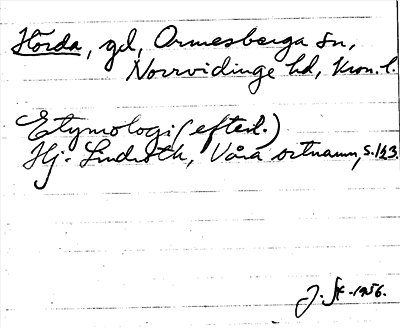 Hörda, gd, Ormesberga sn,
Norrvidinge hd, Kron. l.
Etymologi (efterl.)
Hj. Lindroth, Våra ortnamn, s. 123.
J. St. 1956.